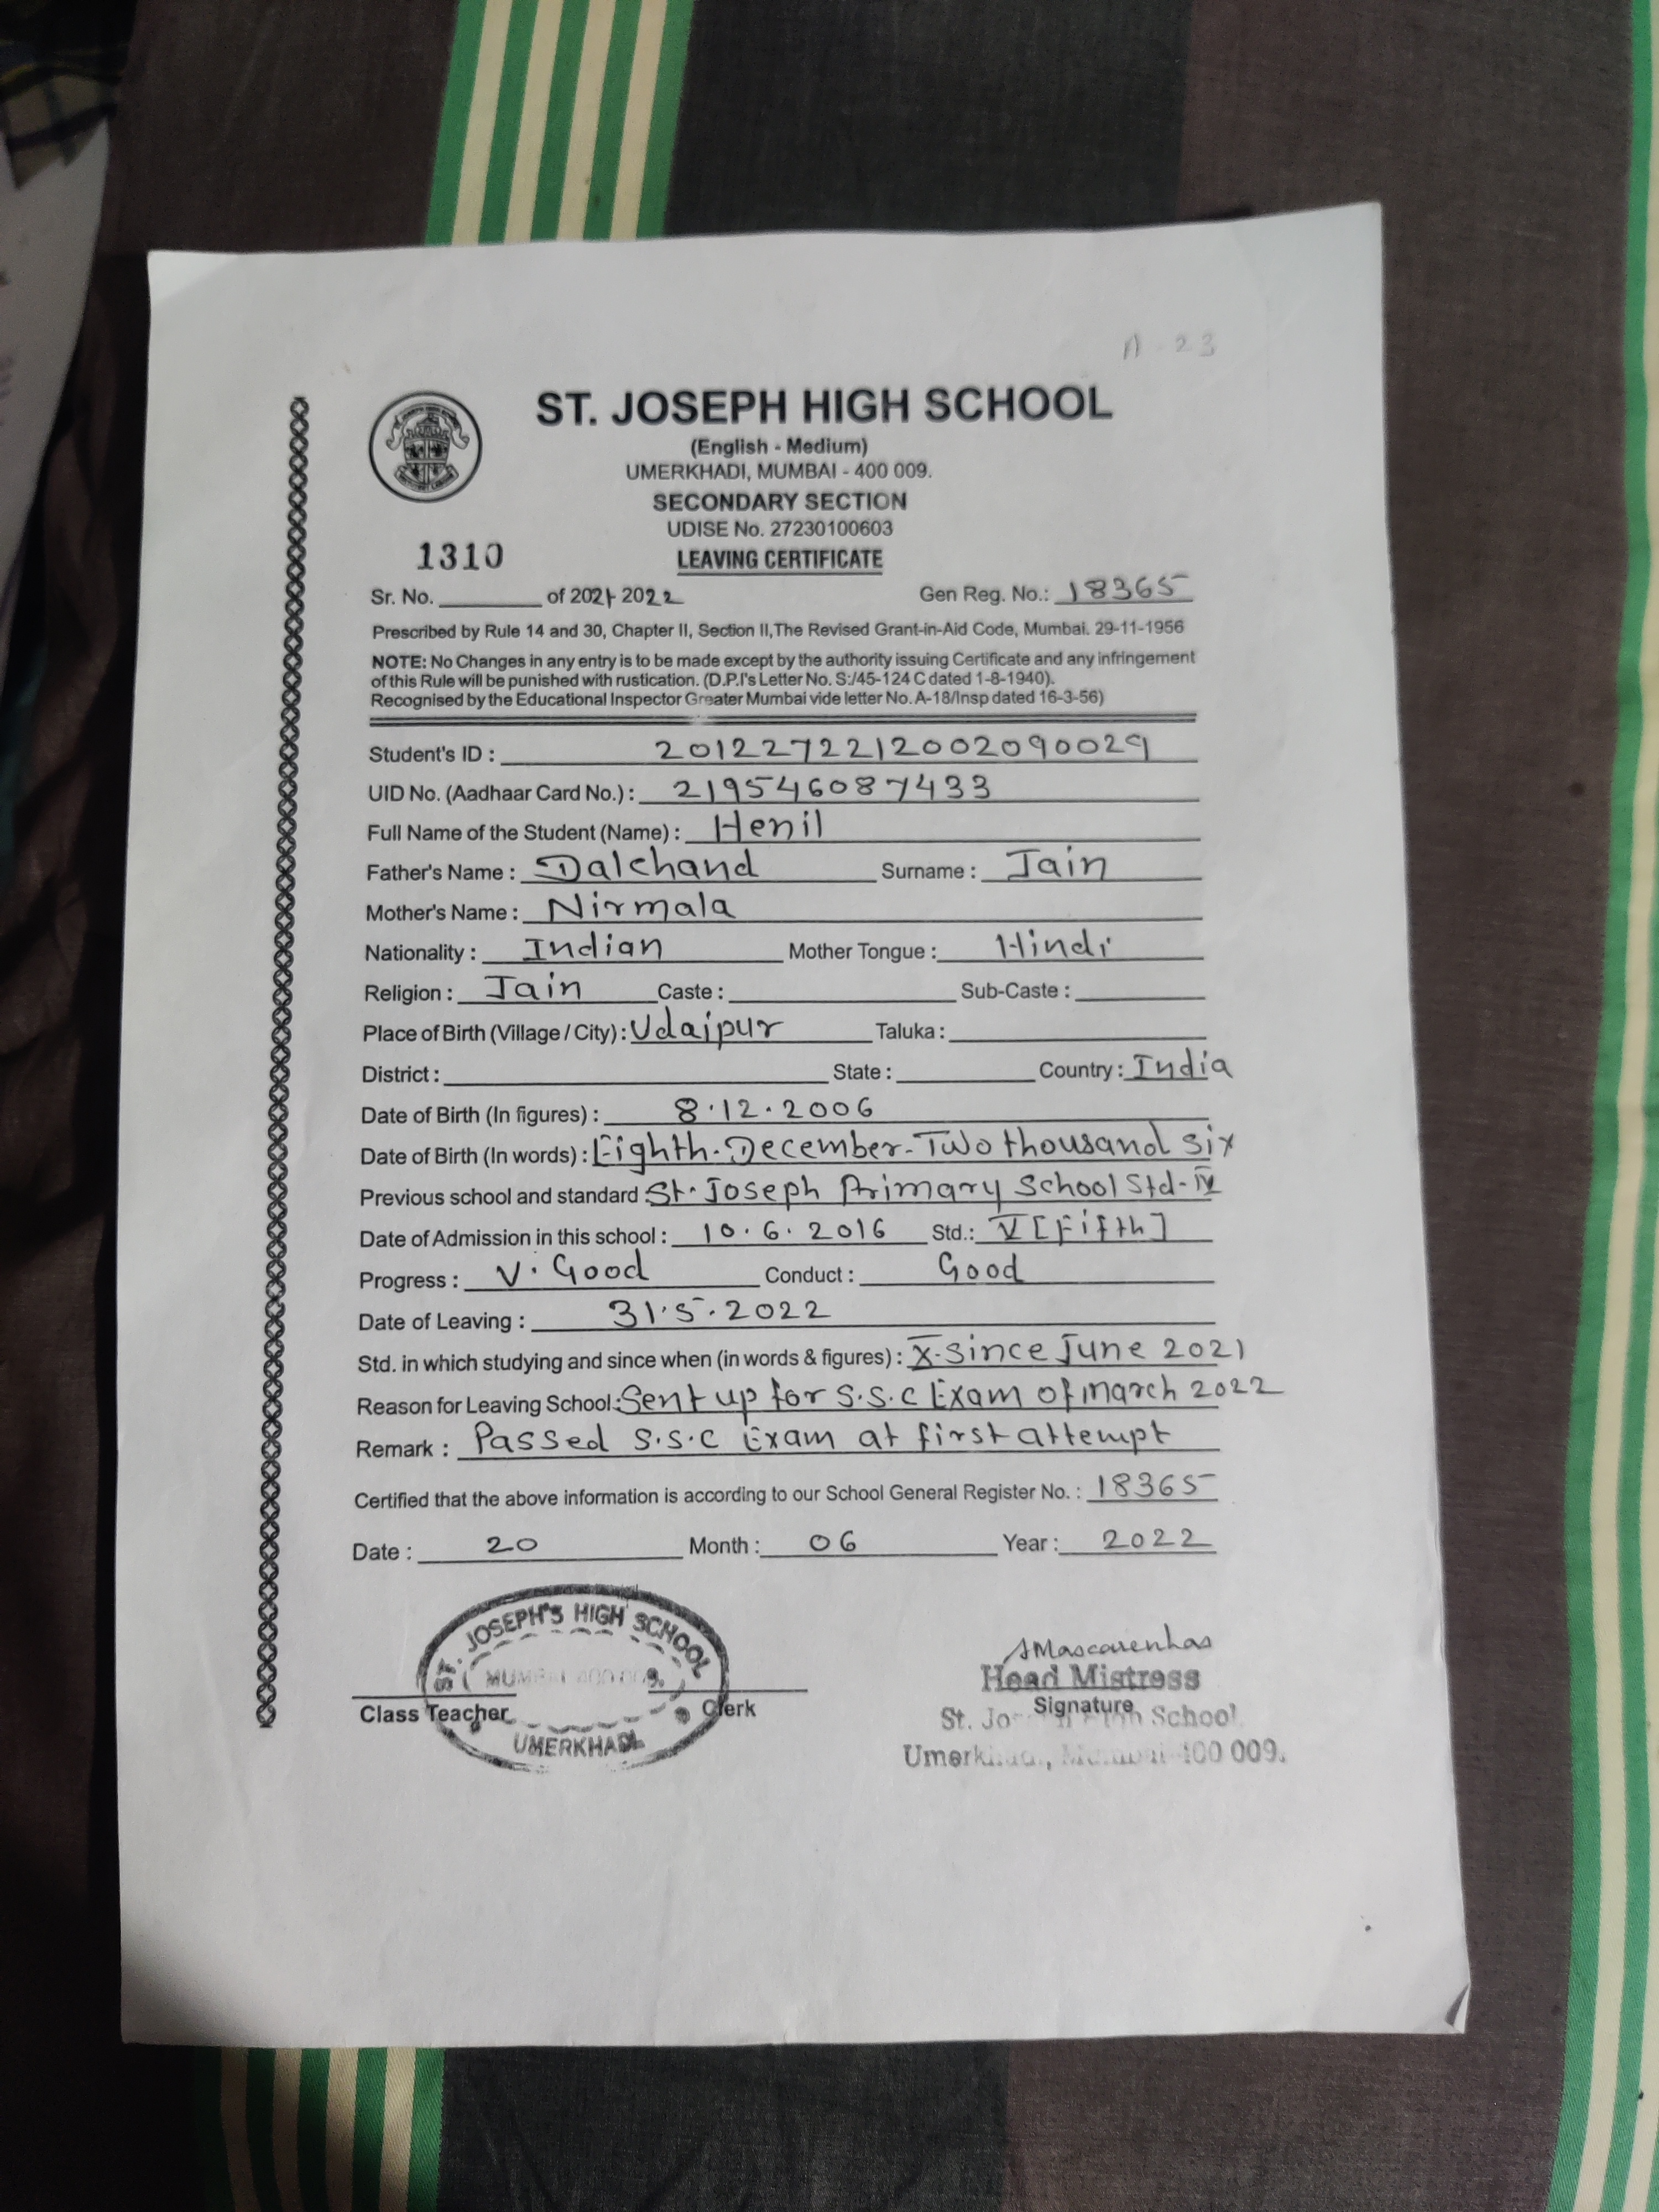 A - 23
ST. JOSEPH HIGH SCHOOL
(English - Medium)
UMERKHADI, MUMBAI - 400 009.
SECONDARY SECTION
UDISE No. 27230100603
1310
LEAVING CERTIFICATE
Sr. No. of 2021-2022 Gen Reg. No.: 18365
Prescribed by Rule 14 and 30, Chapter II, Section II, The Revised Grant-in-Aid Code, Mumbai. 29-11-1956
NOTE: No Changes in any entry is to be made except by the authority issuing Certificate and any infringement
of this Rule will be punished with rustication. (D.P.I's Letter No. S:/45-124 C dated 1-8-1940).
Recognised by the Educational Inspector Greater Mumbai vide letter No. A-18/Insp dated 16-3-56)
Student's ID : 2012272212002090029
UID No. (Aadhaar Card No.) : 219546087433
Full Name of the Student (Name) : Henil
Father's Name : Dalchand Surname : Jain
Mother's Name : Nirmala
Nationality : Indian Mother Tongue : Hindi
Religion : Jain Caste : Sub-Caste :
Place of Birth (Village / City) : Udaipur Taluka :
District : State : Country : India
Date of Birth (In figures) : 8.12.2006
Date of Birth (In words) : Eighth-December-Two thousand six
Previous school and standard : St. Joseph Primary School Std-IV
Date of Admission in this school : 10.6.2016 Std.: V [Fifth]
Progress : V. Good Conduct : Good
Date of Leaving : 31.5.2022
Std. in which studying and since when (in words & figures) : X-since June 2021
Reason for Leaving School : Sent up for S.S.C Exam of march 2022
Remark : Passed S.S.C Exam at first attempt
Certified that the above information is according to our School General Register No. : 18365
Date : 20 Month : 06 Year : 2022
ST. JOSEPH'S HIGH SCHOOL
MUMBAI 400 009.
UMERKHADI
Class Teacher Clerk
AMascarenhas
Head Mistress
Signature
St. Joseph High School
Umerkhadi, Mumbai-400 009.